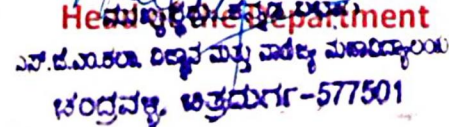 Head of the Department
ಎಸ್.ಜೆ.ಎಂ.ಕಲಾ, ವಿಜ್ಞಾನ ಮತ್ತು ವಾಣಿಜ್ಯ ಮಹಾವಿದ್ಯಾಲಯ
ಚಂದ್ರವಳ್ಳಿ, ಚಿತ್ರದುರ್ಗ-577501